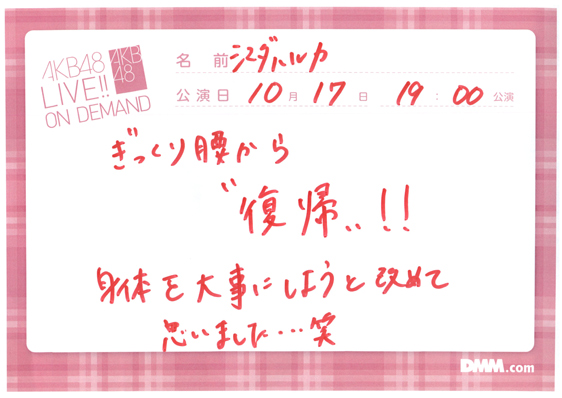 AKB48
LIVE!!
ON DEMAND
AKB
48
名 前 シマダハルカ
公演日 10月 17日 19:00 公演
ぎっくり腰から
〝復帰〟!!
身体を大事にしようと改めて
思いました…笑
DMM.com